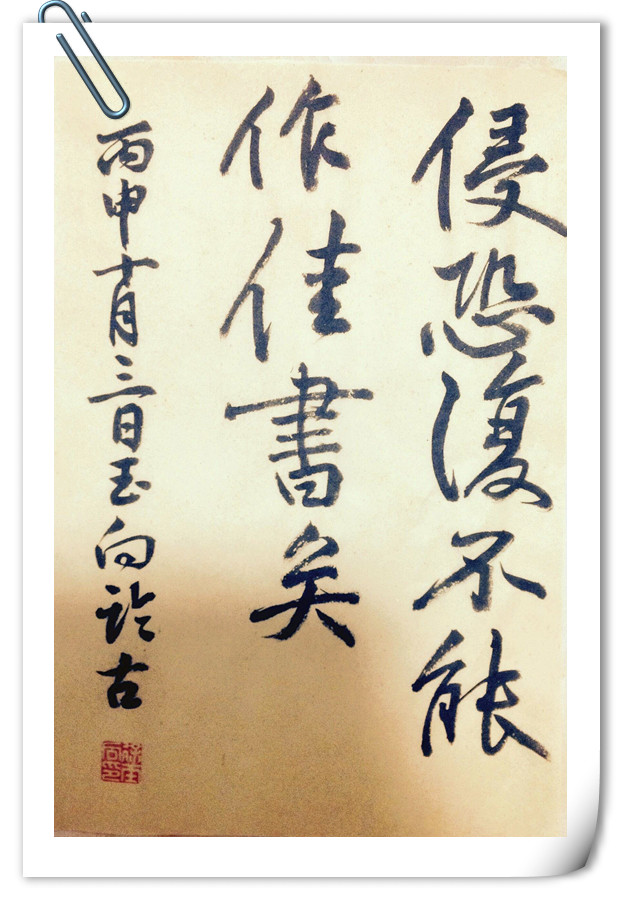 侵恐復不能
作佳書矣
丙申十月三日玉向臨古